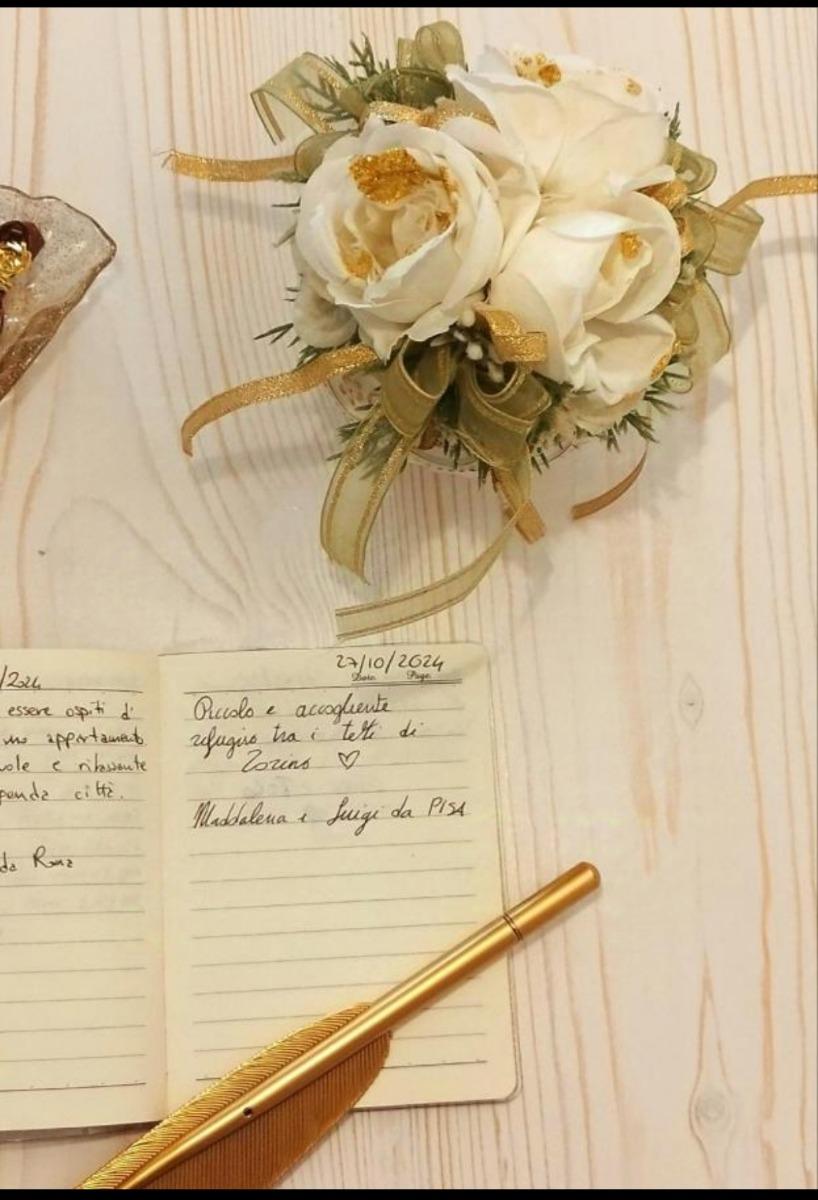 /2024
essere ospiti di
uno appartamento
vole e rilassante
penda città.
da Roma
27/10/2024
Date Page
Piccolo e accogliente
rifugio tra i tetti di
Torino ♡
Maddalena e Luigi da PISA